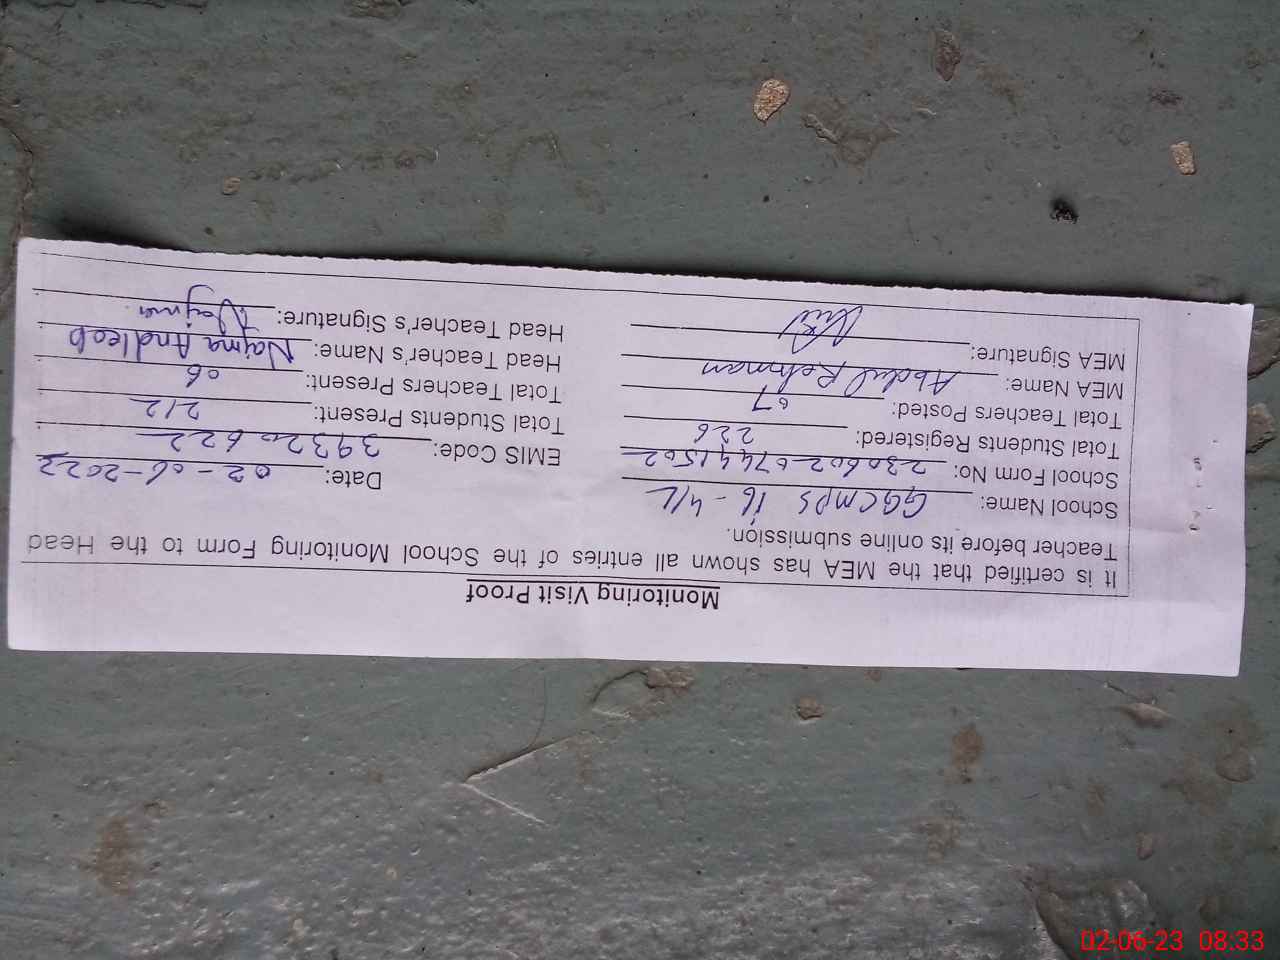 Monitoring Visit Proof
It is certified that the MEA has shown all entries of the School Monitoring Form to the Head
Teacher before its online submission.
School Name: GGCMPS 16-4/L Date: 02-06-2023
School Form No: 23060207441502 EMIS Code: 39320622
Total Students Registered: 226 Total Students Present: 212
Total Teachers Posted: 07 Total Teachers Present: 06
MEA Name: Abdul Rehman Head Teacher's Name: Najma Andleeb
MEA Signature: Head Teacher's Signature: Najma
02-06-23 08:33